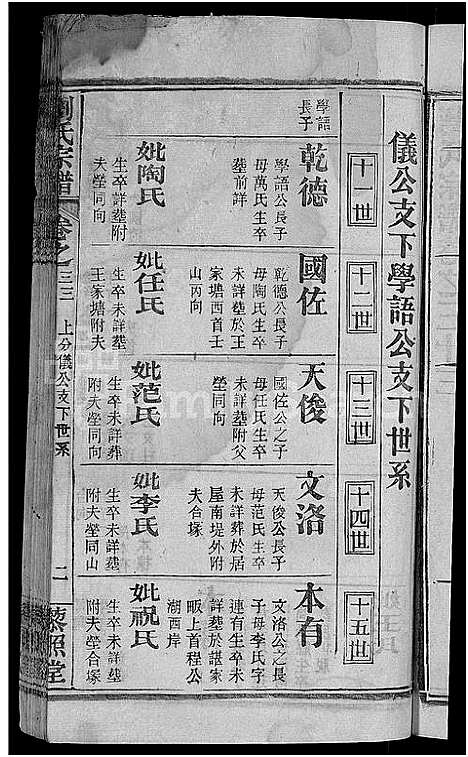 儀公支下學語公支下世系
十一世
十二世
十三世
十四世
十五世
學語
長子
乾德
學語公長子
母萬氏生卒
塟前詳
妣陶氏
生卒詳塟附
夫塋同向
國佐
乾德公長子
母陶氏生卒
未詳塟於王
家塘西首壬
山丙向
妣任氏
生卒未詳塟
王家塘附夫
天俊
國佐公之子
母任氏生卒
未詳塟附父
塋同向
妣范氏
生卒未詳葬
附夫塋同向
文洛
天俊公長子
母范氏生卒
未詳葬於居
屋南堤外附
夫合塚
妣李氏
生卒未詳塟
附夫塋同山
本有
文洛公之長
子母李氏字
連有生卒未
詳塟於諶家
畈上首程公
湖西岸
妣祝氏
生卒未詳塟
附夫塋合塚
劉氏宗譜
卷之三三
上分儀公支下世系
二
黎照堂